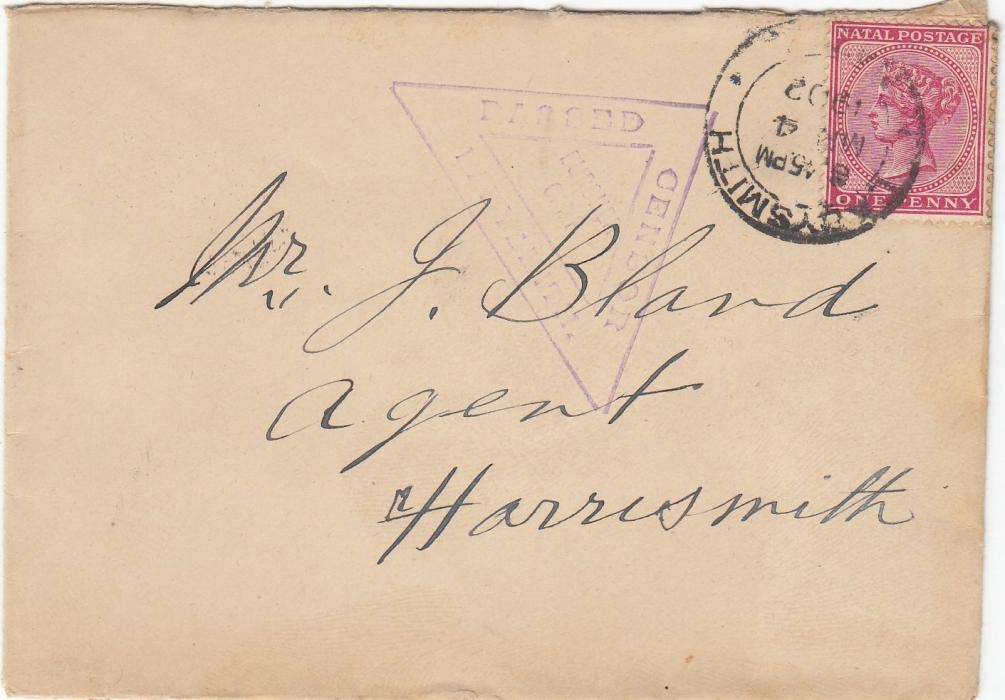 NATAL POSTAGE
ONE PENNY
LADYSMITH
8 45 PM
4
PASSED
CENSOR
Mr. J. Bland
Agent
Harrismith